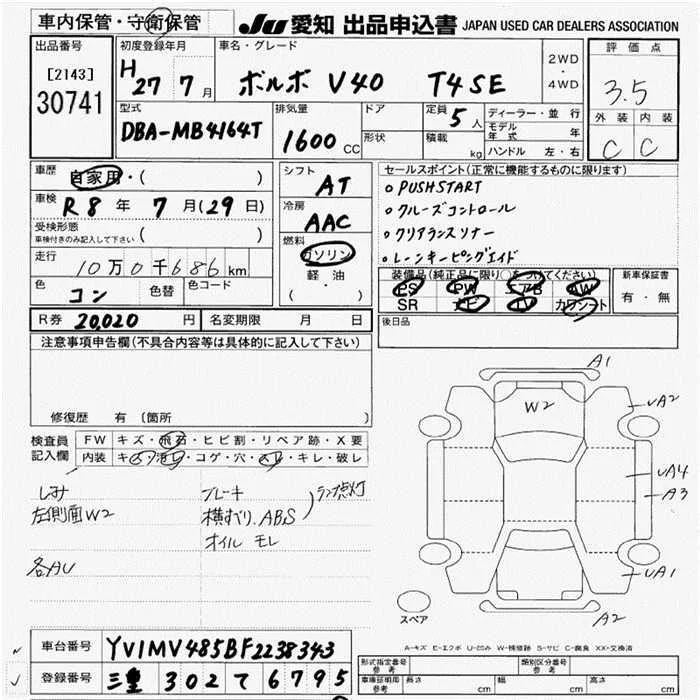 車内保管・守衛保管
JU 愛知 出品申込書 JAPAN USED CAR DEALERS ASSOCIATION
出品番号
[2143]
30741
初度登録年月
H 27 7 月
車名・グレード
ボルボ V40 T4 SE
2WD
・
4WD
評価点
3.5
外装 内装
C C
型式
DBA-MB4164T
排気量
1600 CC
ドア
形状
定員 5 人
積載 kg
ディーラー・並行
モデル年式 年
ハンドル 左・右
車歴
自家用・( )
車検
R 8 年 7 月(29 日)
受検形態
車検付きのみ記入して下さい ( )
走行
10万0千686 km
色
コン
色替
色コード
シフト
AT
冷房
AAC
燃料
ガソリン
軽・油
( ・ )
セールスポイント(正常に機能するものに限ります)
○PUSHSTART
○クルーズコントロール
○クリアランスソナー
○レーンキーピングエイド
装備品(純正品に限り○をつけてください)
PS PW エアB AW
SR ナビ TV カワシート
新車保証書
有・無
後日品
R券 20,020 円
名変期限 月 日
注意事項申告欄(不具合内容等は具体的に記入して下さい)
修復歴 有(箇所 )
検査員
記入欄
FW キズ・飛石・ヒビ割・リペア跡・X要
内装 キズ・汚レ・コゲ・穴・スレ・キレ・破レ
しみ
左側面W2
各AU
ブレーキ
横すべり.ABS
オイル モレ
ランプ点灯
A1
W2
UA2
UA4
A3
UA1
A2
スペア
A-キズ E-エクボ U-凹み W-補修跡 S-サビ C-腐食 XX-交換済
車台番号 YV1MV485BF2238343
登録番号 三重 302 て 6795
形式指定番号
参考
類別区分番号
参考
車庫証明用
参考
長さ cm 幅 cm 高さ cm